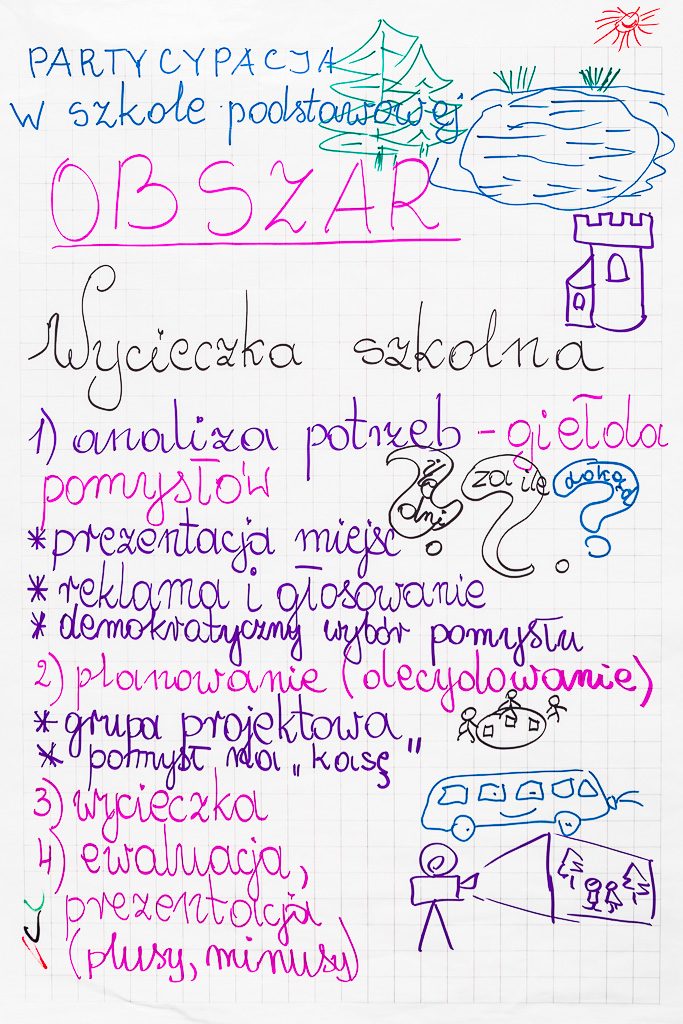 PARTYCYPACJA
w szkole podstawowej
OBSZAR
Wycieczka szkolna
1) analiza potrzeb - giełda
pomysłów
ile dni
za ile
dokąd
* prezentacja miejsc
* reklama i głosowanie
* demokratyczny wybór pomysłu
2) planowanie (decydowanie)
* grupa projektowa
* pomysł na „kasę"
3) wycieczka
4) ewaluacja,
prezentacja
(plusy, minusy)